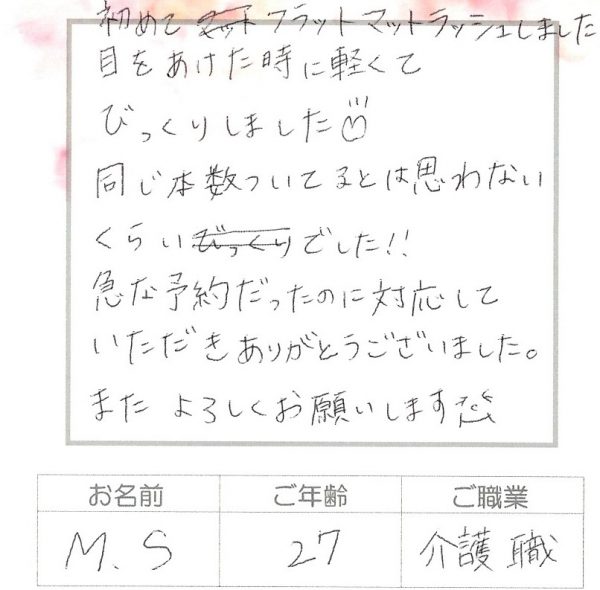 初めて フラットマットラッシュしました
目をあけた時に軽くて
びっくりしました
同じ本数ついてるとは思わない
くらいびっくりでした!!
急な予約だったのに対応して
いただきありがとうございました。
また よろしくお願いします
お名前 ご年齢 ご職業
M.S 27 介護職